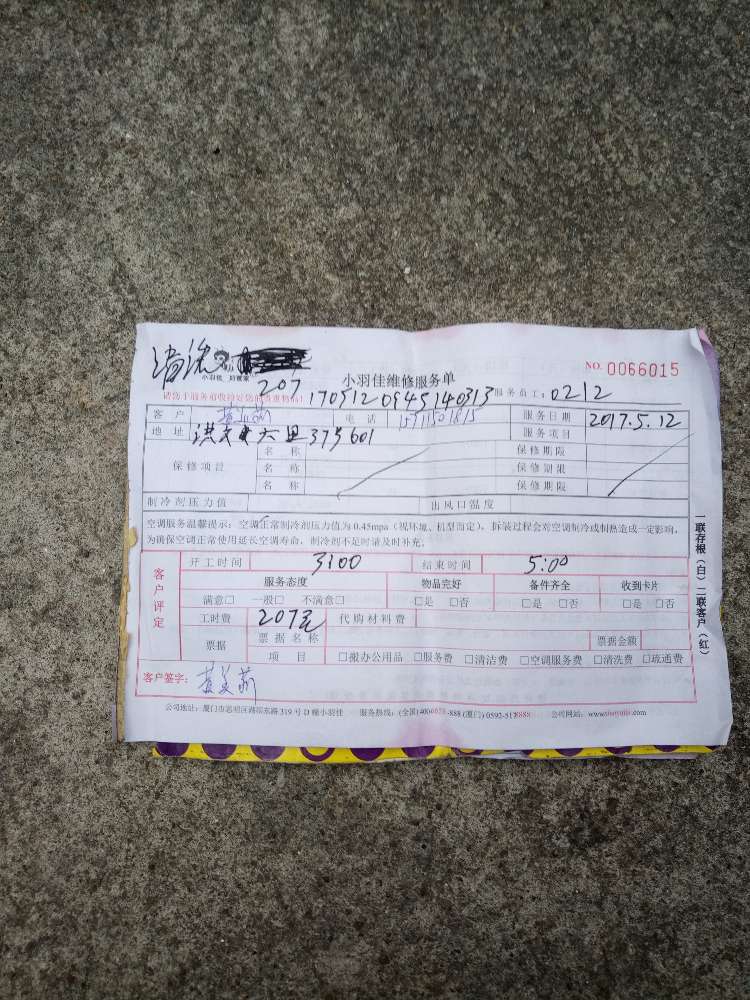 清洗
NO. 0066015
小羽佳维修服务单
207 170512 0945140313 服务员工: 0212
客户 电话 服务日期 2017.5.12
地址 洪文 六里 37号601 服务项目
保修项目 名称 保修期限
名称 保修期限
名称 保修期限
制冷剂压力值 出风口温度
空调服务温馨提示: 空调正常制冷剂压力值为 0.45mpa (视环境、机型而定)。拆装过程会对空调制冷或制热造成一定影响,
为确保空调正常使用延长空调寿命, 制冷剂不足时请及时补充。
一联存根(白)二联客户(红)
客户评定
开工时间 3:00 结束时间 5:00
服务态度 物品完好 备件齐全 收到卡片
满意□ 一般□ 不满意□ □是 □否 □是 □否 □是 □否
工时费 207元 代购材料费
票据 票据名称 票据金额
项目 □搬办公用品 □服务费 □清洁费 □空调服务费 □清洗费 □疏通费
客户签字: 黄美莉
服务热线: (全国)
公司网站: